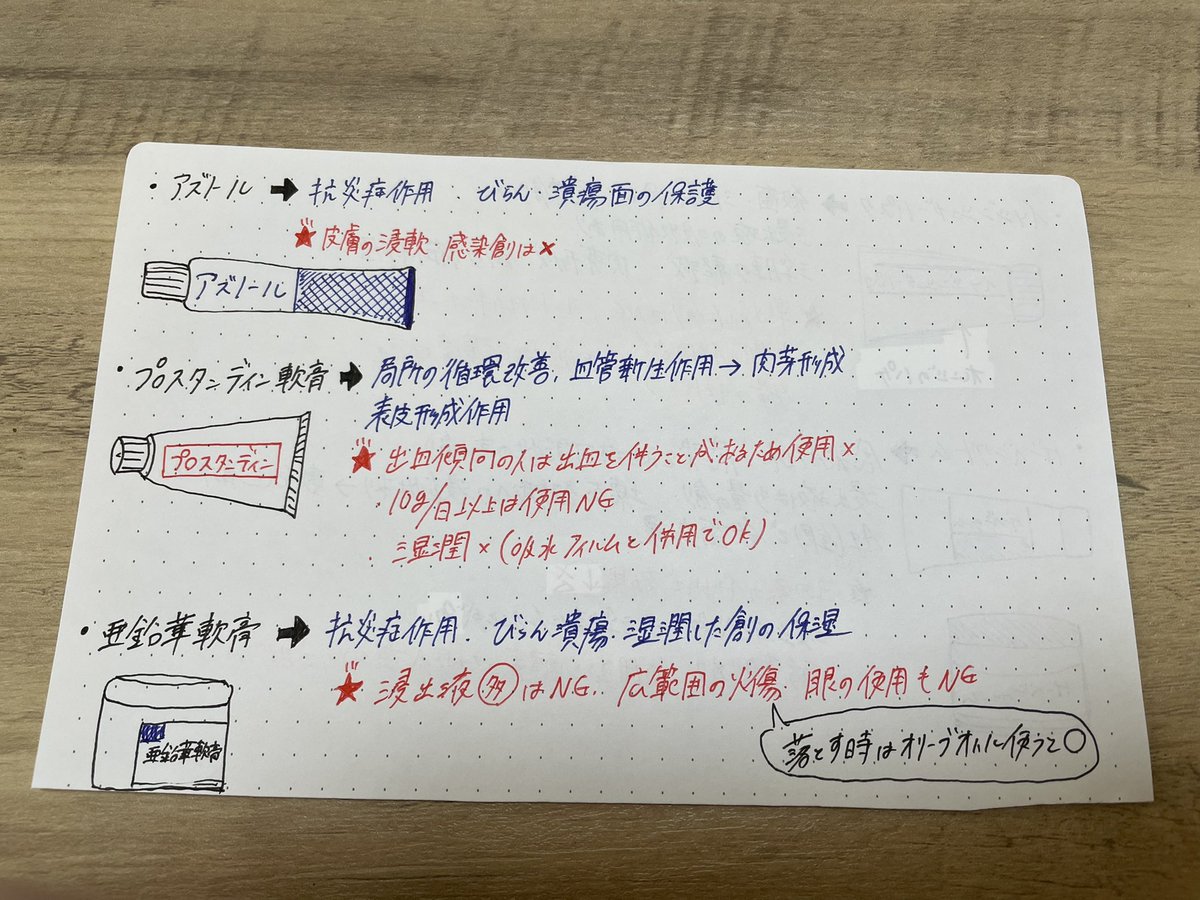 ・アズノール ➡ 抗炎症作用. びらん・潰瘍面の保護
★皮膚の浸軟・感染創は×
アズノール
・プロスタンディン軟膏 ➡ 局所の循環改善、血管新生作用→肉芽形成
表皮形成作用
プロスタンディン
★出血傾向の人は出血を伴うことがあるため使用×
・10g/日以上は使用NG
・湿潤×(吸水フィルムと併用でOK)
・亜鉛華軟膏 ➡ 抗炎症作用. びらん潰瘍・湿潤した創の保湿
★浸出液多はNG. 広範囲の火傷・眼の使用もNG
亜鉛華軟膏
落とす時はオリーブオイルに使うと○